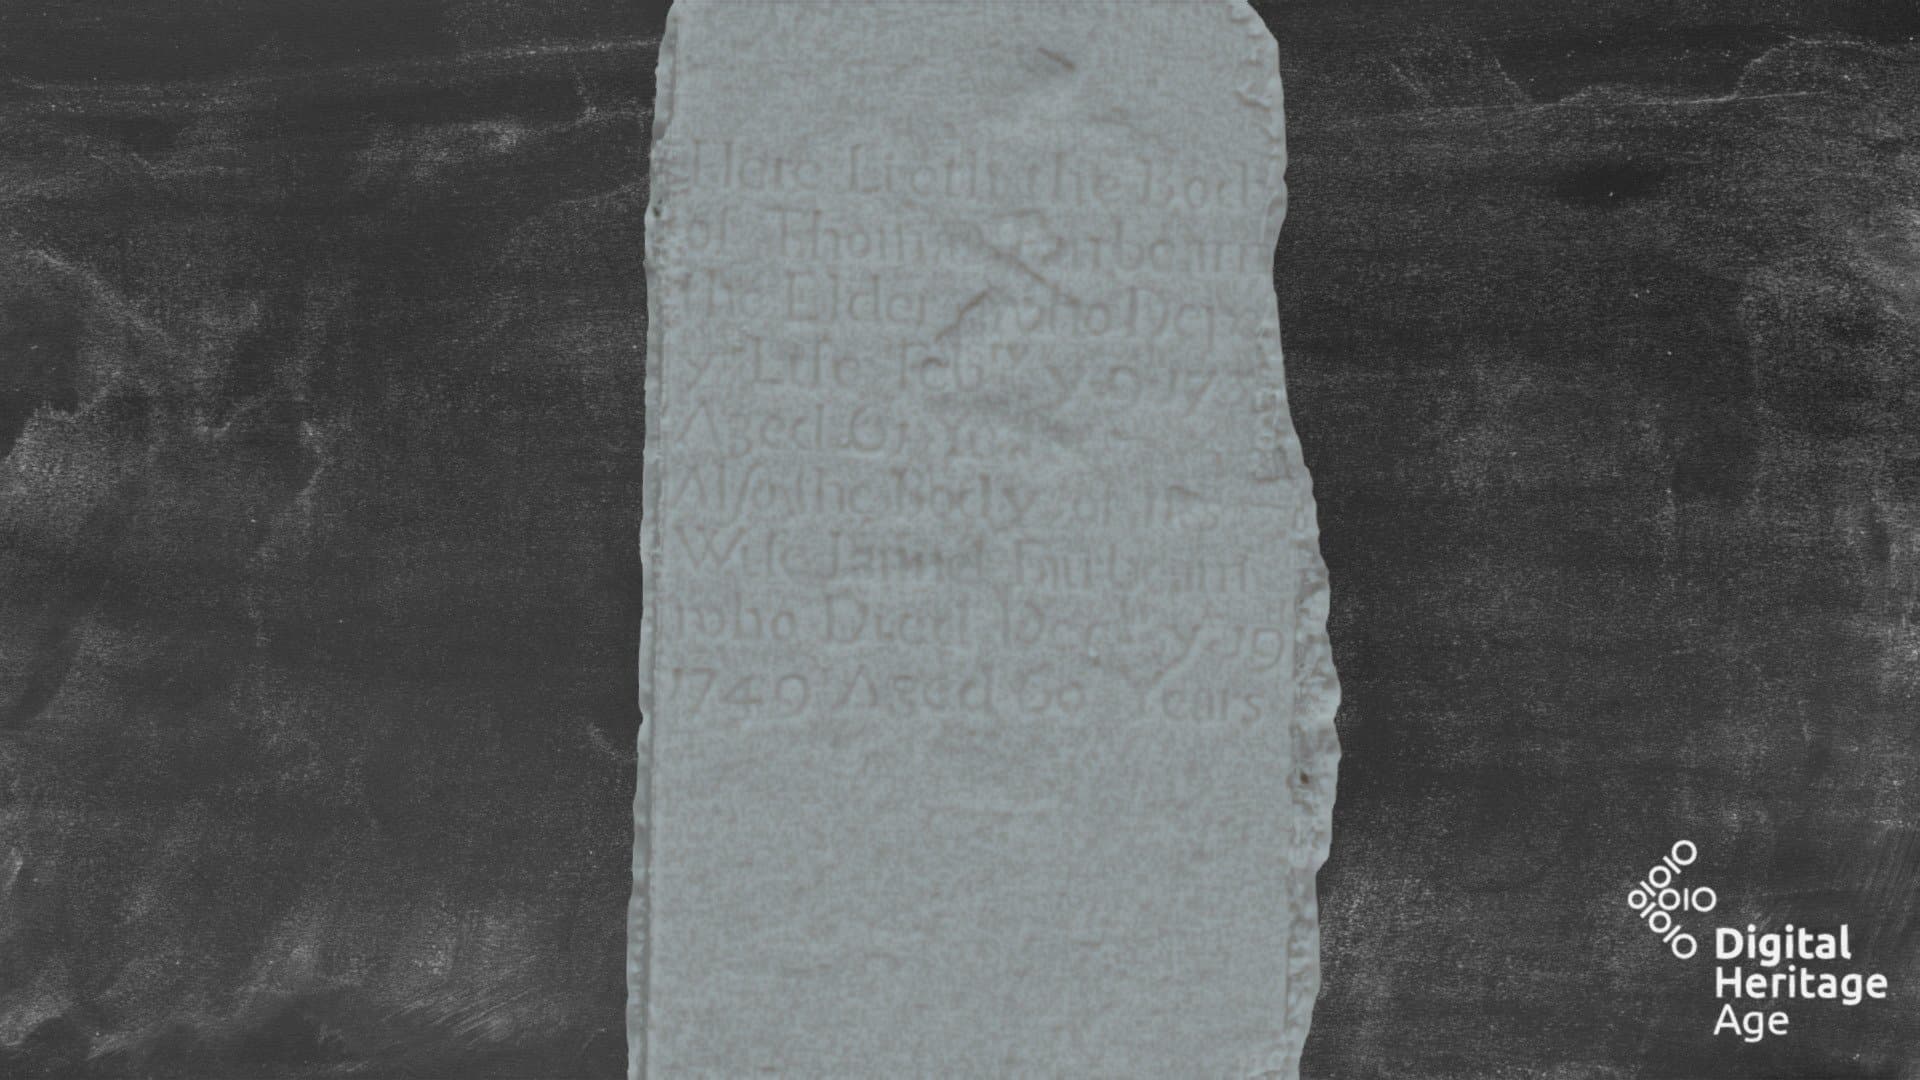 Here Lieth the Body
of Thomas Fairbairn
the Elder who
yᵉ Life Febʳʸ yᵉ 9
Aged 61
Alſo the Body of his
Wife Fairbairn
who Died Decʳ yᵉ 19
1749 Aged 60 Years
Digital
Heritage
Age